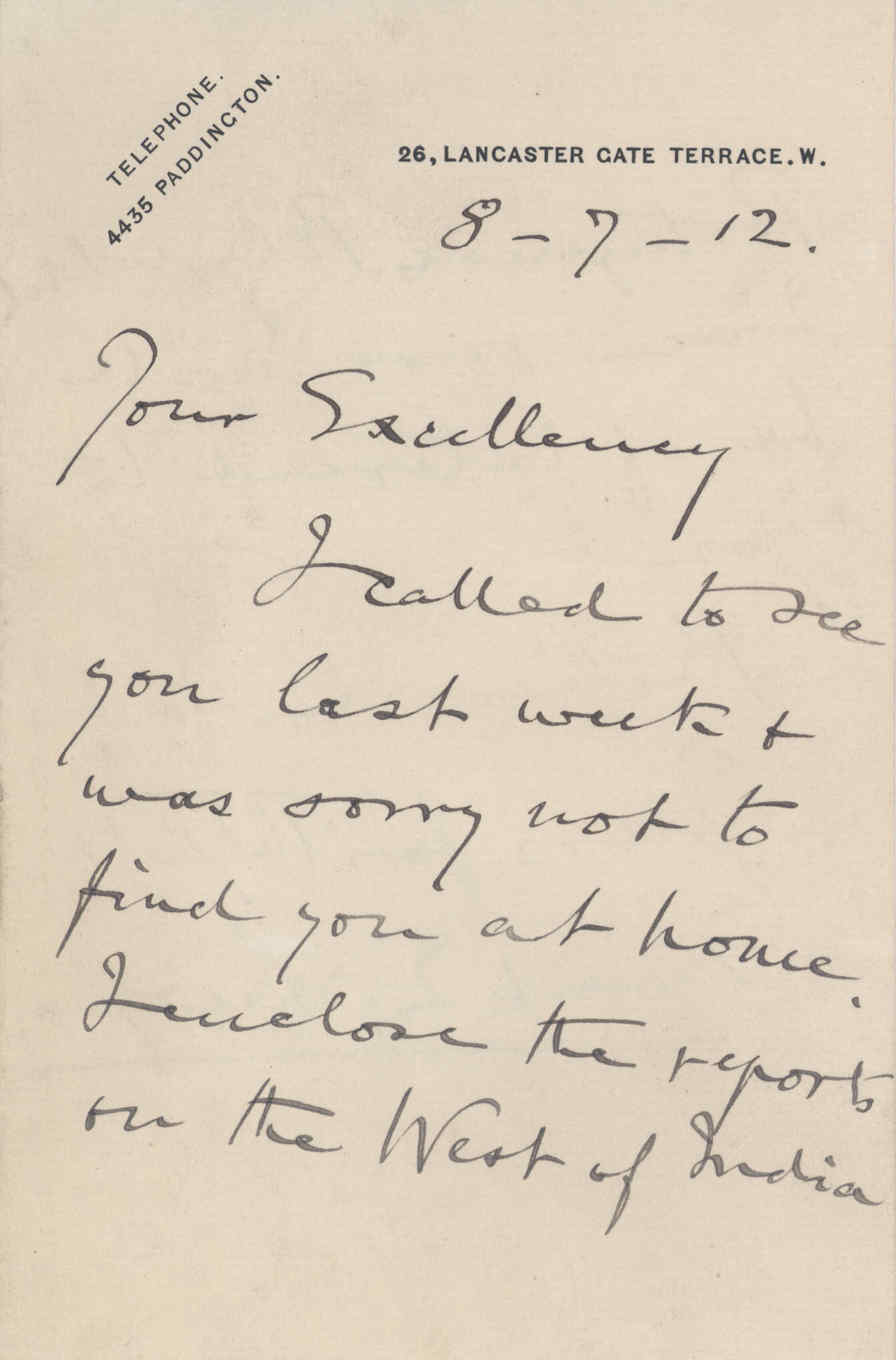 TELEPHONE.
4435 PADDINGTON.
26, LANCASTER GATE TERRACE. W.
8 - 7 - 12.
Your Excellency
I called to see
you last week &
was sorry not to
find you at home.
I enclose the reports
on the West of India